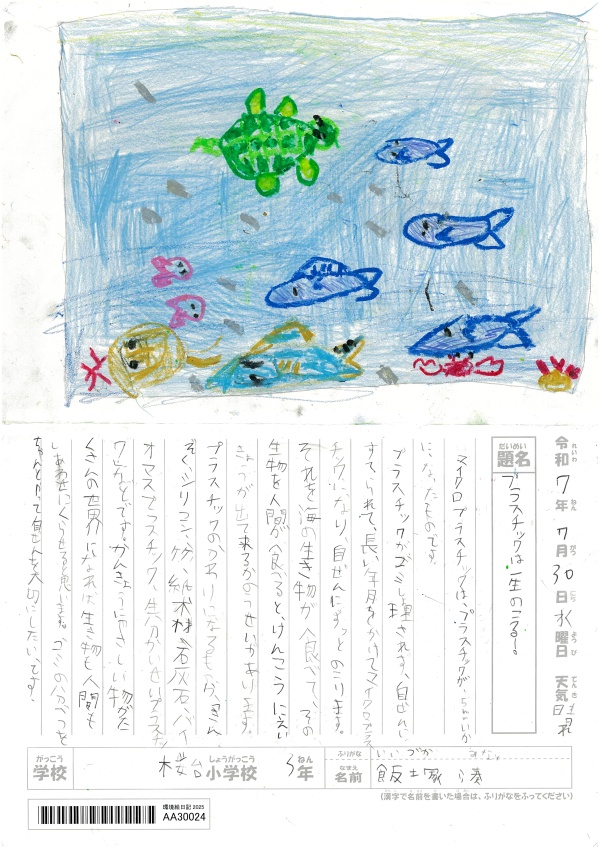 令和7年7月30日水曜日 天気晴れ
れいわ ねん がつ にち ようび てんき
だいめい
題名
プラスチックは一生のこる〜。
マイクロプラスチックは、プラスチックが、ちいか
に、なったものです。
プラスチックがゴミしょ理されず、自ぜんに
すてられて、長い年月をかけてマイクロプラス
チックになり、自ぜんにずっとのこります。
それを海の生き物が食べて、その
生物を人間が食べると、けんこうにえい
きょうが出て来るかのうせいがあります。
プラスチックのかわりになるものが、
ぞく、シリコン、竹、紙、木材、石灰石、バイ
オマスプラスチック、生分かいせいプラスチッ
クなどです。かんきょうにやさしい物がた
くさんの世界になれば生き物も人間も
しあわせにくらせると思います。ゴミの分べつを
ちゃんとやって自ぜんを大切にしたい、です。
がっこう
学校
桜台小学校 3年
しょうがっこう ねん
ふりがな いいづか みなと
なまえ
名前 飯塚 湊
(漢字で名前を書いた場合は、ふりがなをふってください)
環境絵日記 2025
AA30024